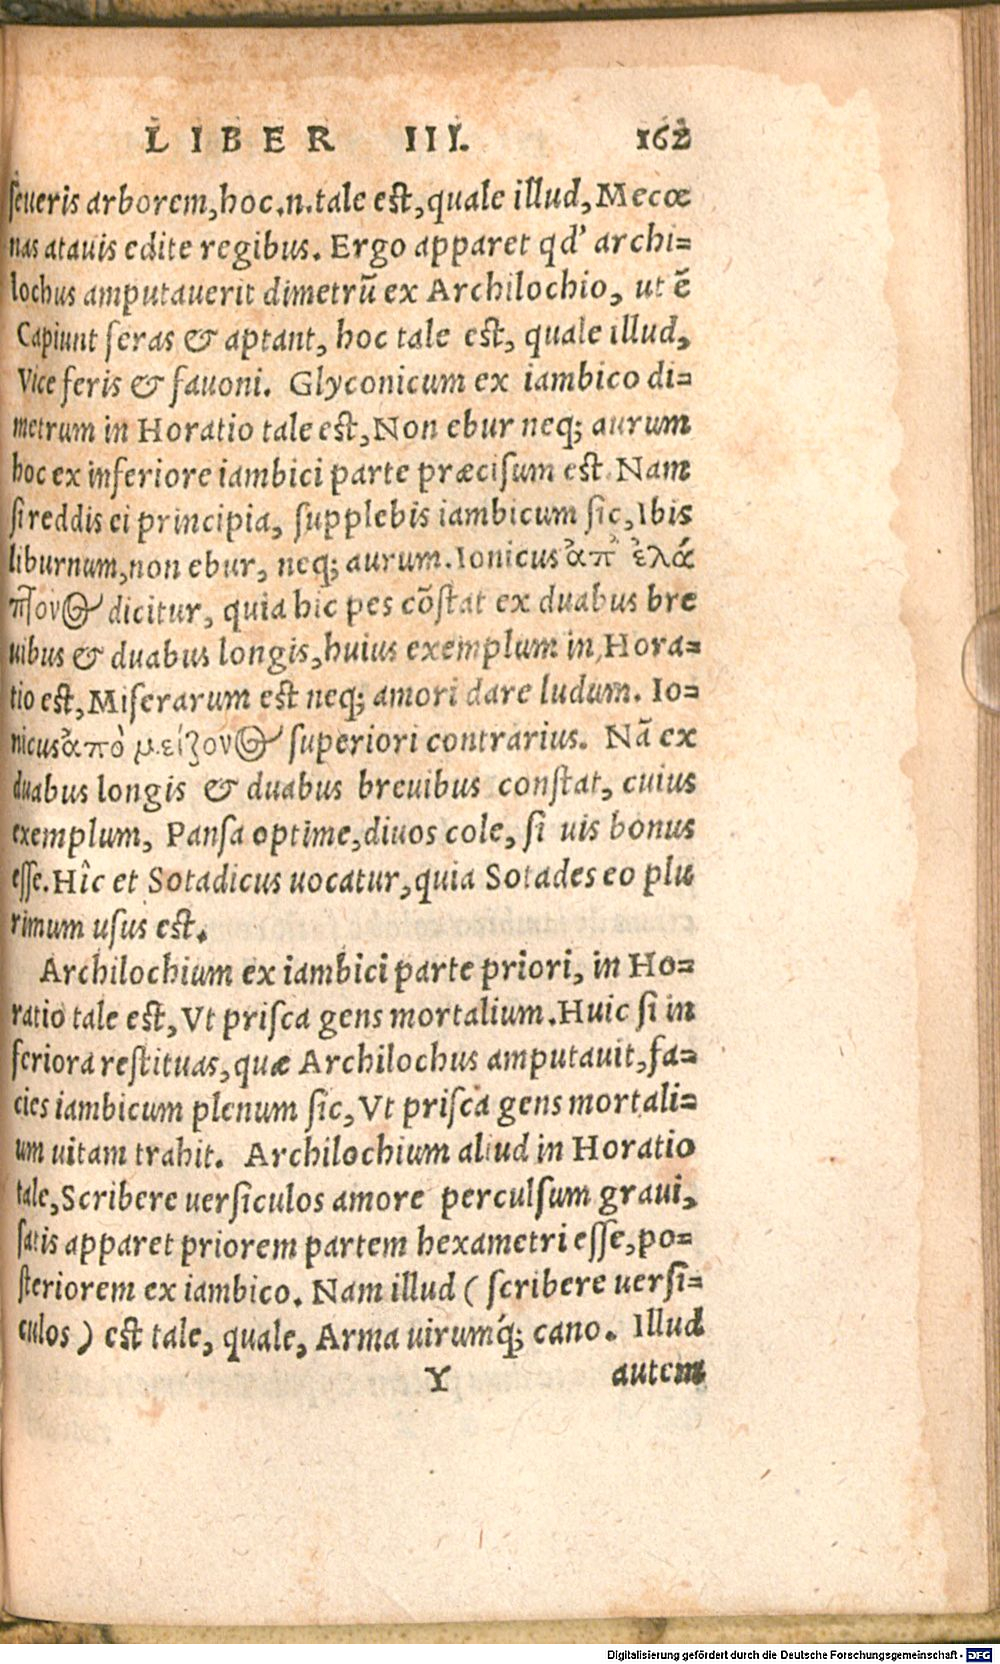 LIBER III. 162
seueris arborem, hoc .n. tale est, quale illud, Mecœ
nas atauis edite regibus. Ergo apparet qd' archi=
lochus amputauerit dimetrū ex Archilochio, ut ē
Capiunt seras & aptant, hoc tale est, quale illud,
Vice feris & fauoni. Glyconicum ex iambico di=
metrum in Horatio tale est, Non ebur neq; aurum
hoc ex inferiore iambici parte præcisum est. Nam
si reddis ei principia, supplebis iambicum sic, Ibis
liburnum, non ebur, neq; aurum. Ionicus ἀπ' ἐλά
τ͂ονος dicitur, quia hic pes cōstat ex duabus bre
uibus & duabus longis, huius exemplum in Hora=
tio est, Miserarum est neq; amori dare ludum. Io=
nicus ἀπὸ μείζονος superiori contrarius. Nā ex
duabus longis & duabus breuibus constat, cuius
exemplum, Pansa optime, diuos cole, si uis bonus
esse. Hîc et Sotadicus uocatur, quia Sotades eo plu
rimum usus est.
Archilochium ex iambici parte priori, in Ho=
ratio tale est, Vt prisca gens mortalium. Huic si in
feriora restituas, quæ Archilochus amputauit, fa=
cies iambicum plenum sic, Vt prisca gens mortali=
um uitam trahit. Archilochium aliud in Horatio
tale, Scribere uersiculos amore perculsum graui,
satis apparet priorem partem hexametri esse, po=
steriorem ex iambico. Nam illud ( scribere uersi=
culos ) est tale, quale, Arma uirumq́; cano. Illud
Y autem
Digitalisierung gefördert durch die Deutsche Forschungsgemeinschaft - DFG